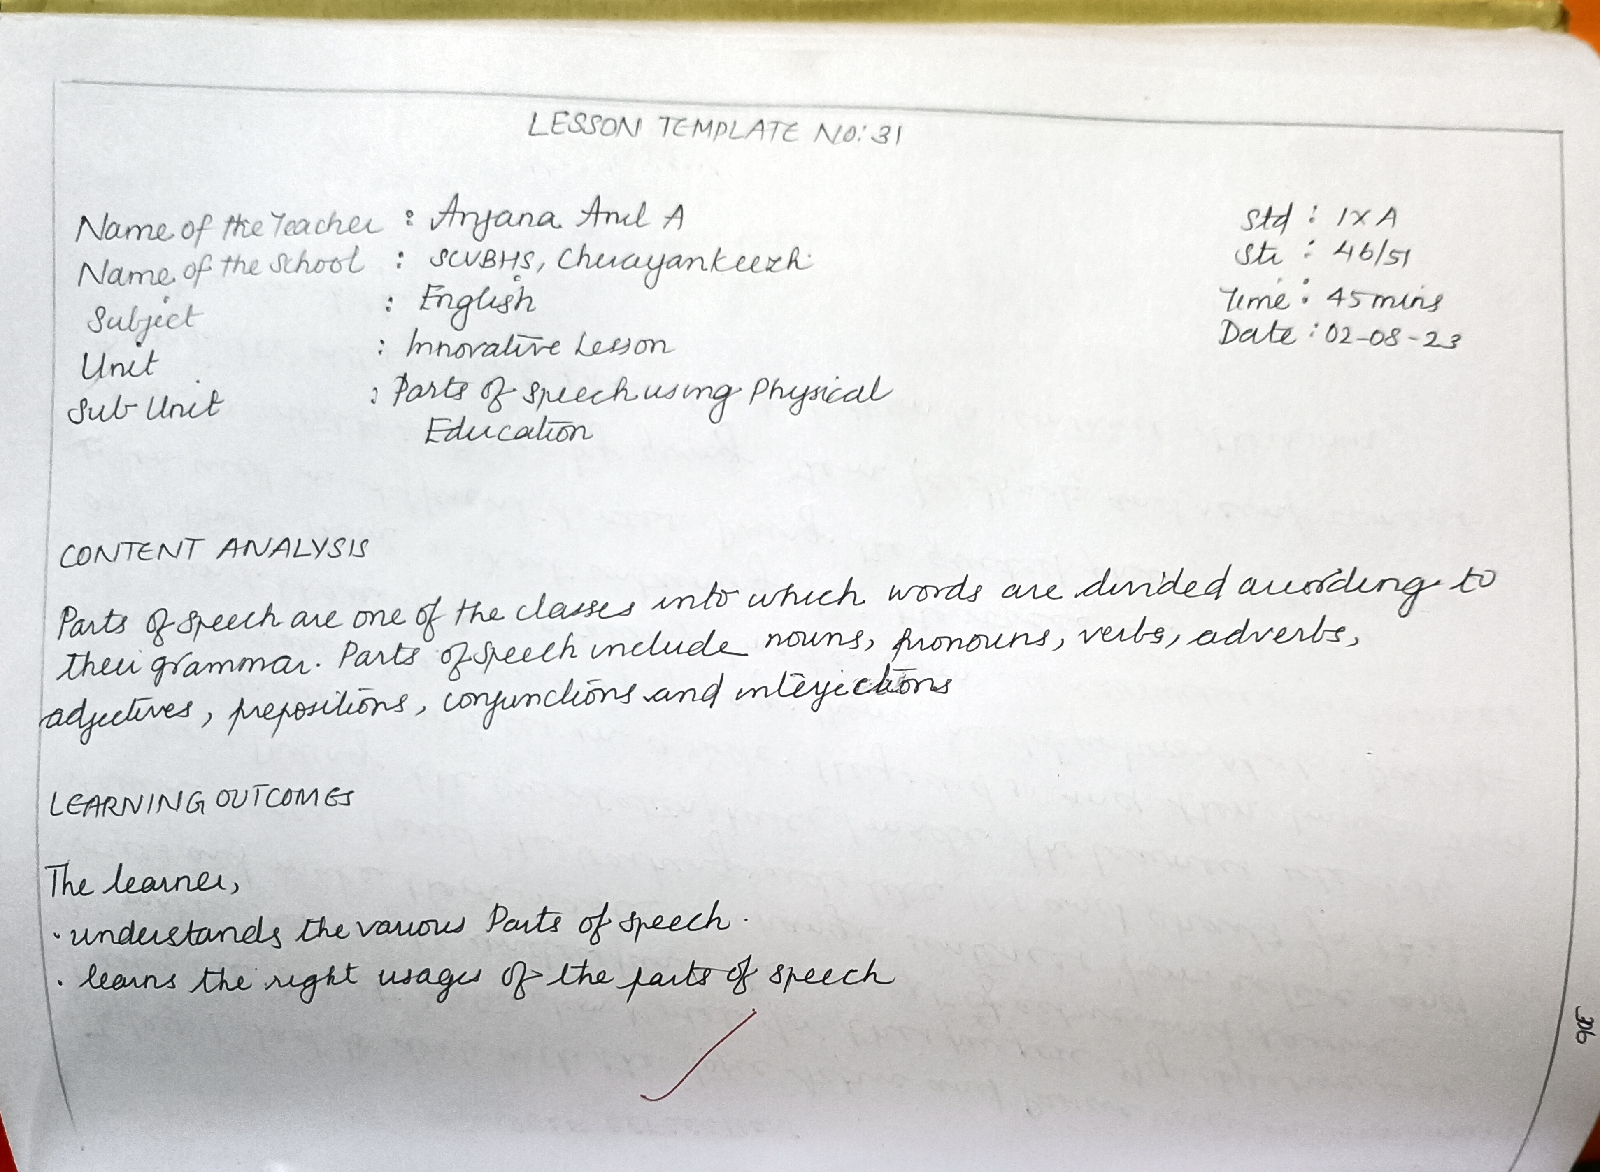 LESSON TEMPLATE NO: 31
Name of the Teacher : Anjana Anil A
Std : IX A
Name of the School : SCVBHS, Chirayankeezh
Str : 46/51
Subject : English
Time : 45 mins
Unit : Innovative Lesson
Date : 02-08-23
Sub Unit : Parts of speech using Physical
Education
CONTENT ANALYSIS
Parts of speech are one of the classes into which words are divided according to
their grammar. Parts of speech include nouns, pronouns, verbs, adverbs,
adjectives, prepositions, conjunctions and interjections
LEARNING OUTCOMES
The learner,
· understands the various Parts of speech.
· learns the right usages of the parts of speech
306